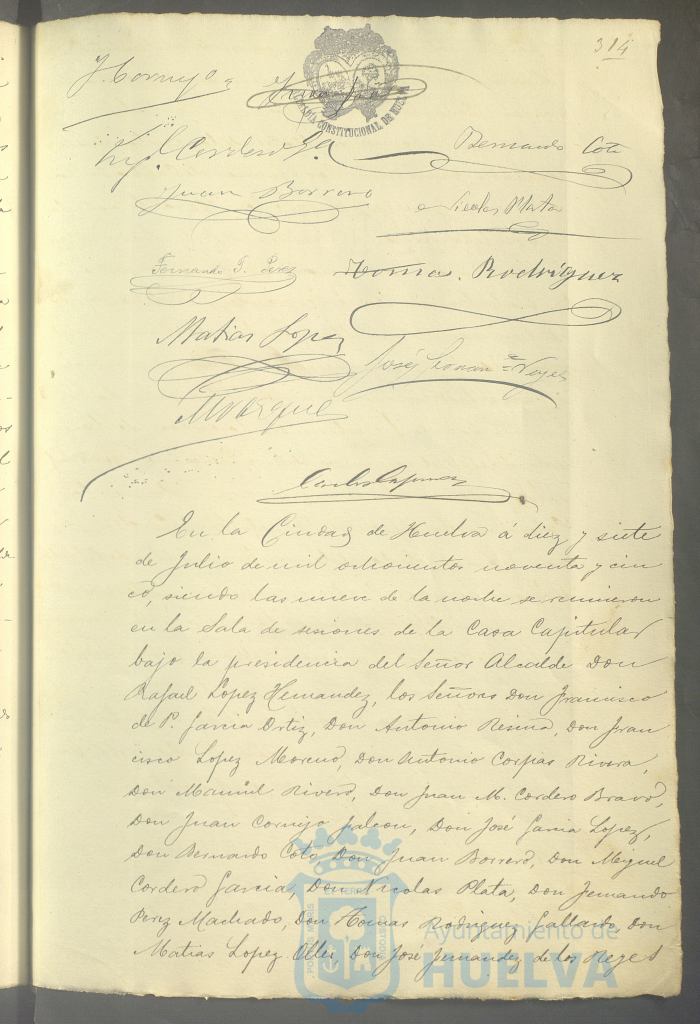 314
J. Cornejo
ALCALDIA CONSTITUCIONAL DE HUELVA
Migl. Cordero Ga.
Bernardo Coto
Juan Borrero
Nicolas Plata
Fernando T. Perez
Tomas Rodriguez
Matias Lopez
José Fernan = Reyes
M Vazquez
En la Ciudad de Huelva á diez y siete
de Julio de mil ochocientos noventa y cin
co, siendo las nueve de la noche se reunieron
en la Sala de sesiones de la Casa Capitular
bajo la presidencia del Señor Alcalde Don
Rafael Lopez Hernandez, los Señores Don Francisco
de P. Garcia Ortiz, Don Antonio Resina, Don Fran
cisco Lopez Moreno, Don Antonio Corpas Rivera,
Don Manuel Rivero, Don Juan M. Cordero Bravo,
Don Juan Cornejo Falcon, Don José Garcia Lopez,
Don Bernardo Coto Don Juan Borrero, Don Miguel
Cordero Garcia, Don Nicolas Plata, Don Fernando
Perez Machado, Don Tomas Rodriguez Gallardo, Don
Matias Lopez Oller, Don José Fernandez de los Reyes
Ayuntamiento de
HUELVA